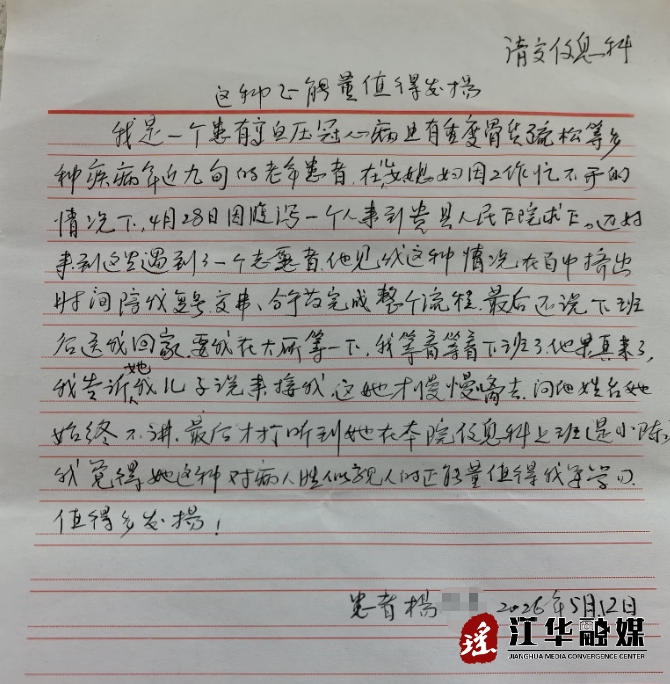 请交信息科
这种正能量值得发揚
我是一个患有高血压冠心病且有重度骨质疏松等多
种疾病年近九旬的老年患者,在女媳妇因工作忙不于的
情况下,4月28日因腹泻一个人来到贵县人民医院求医。还好
来到这里遇到了一个志愿者.他见我这种情况在百忙中挤出
时间陪我复号.交单、分为完成整个流程.最后还说下班
后送我回家.要我在大厅等一下,我等着等着下班了.他果真来了,
我告诉她我儿子说来接我.这她才慢慢离去.问他姓名她
始终不讲.最后才打听到她在本院信息科上班(是小陈)
我觉得她这种对病人胜似親人的正能量值得我们学习.
值得多发揚!
患者楊 2026年5月12日
瑶 江华融媒
JIANGHUA MEDIA CONVERGENCE CENTER